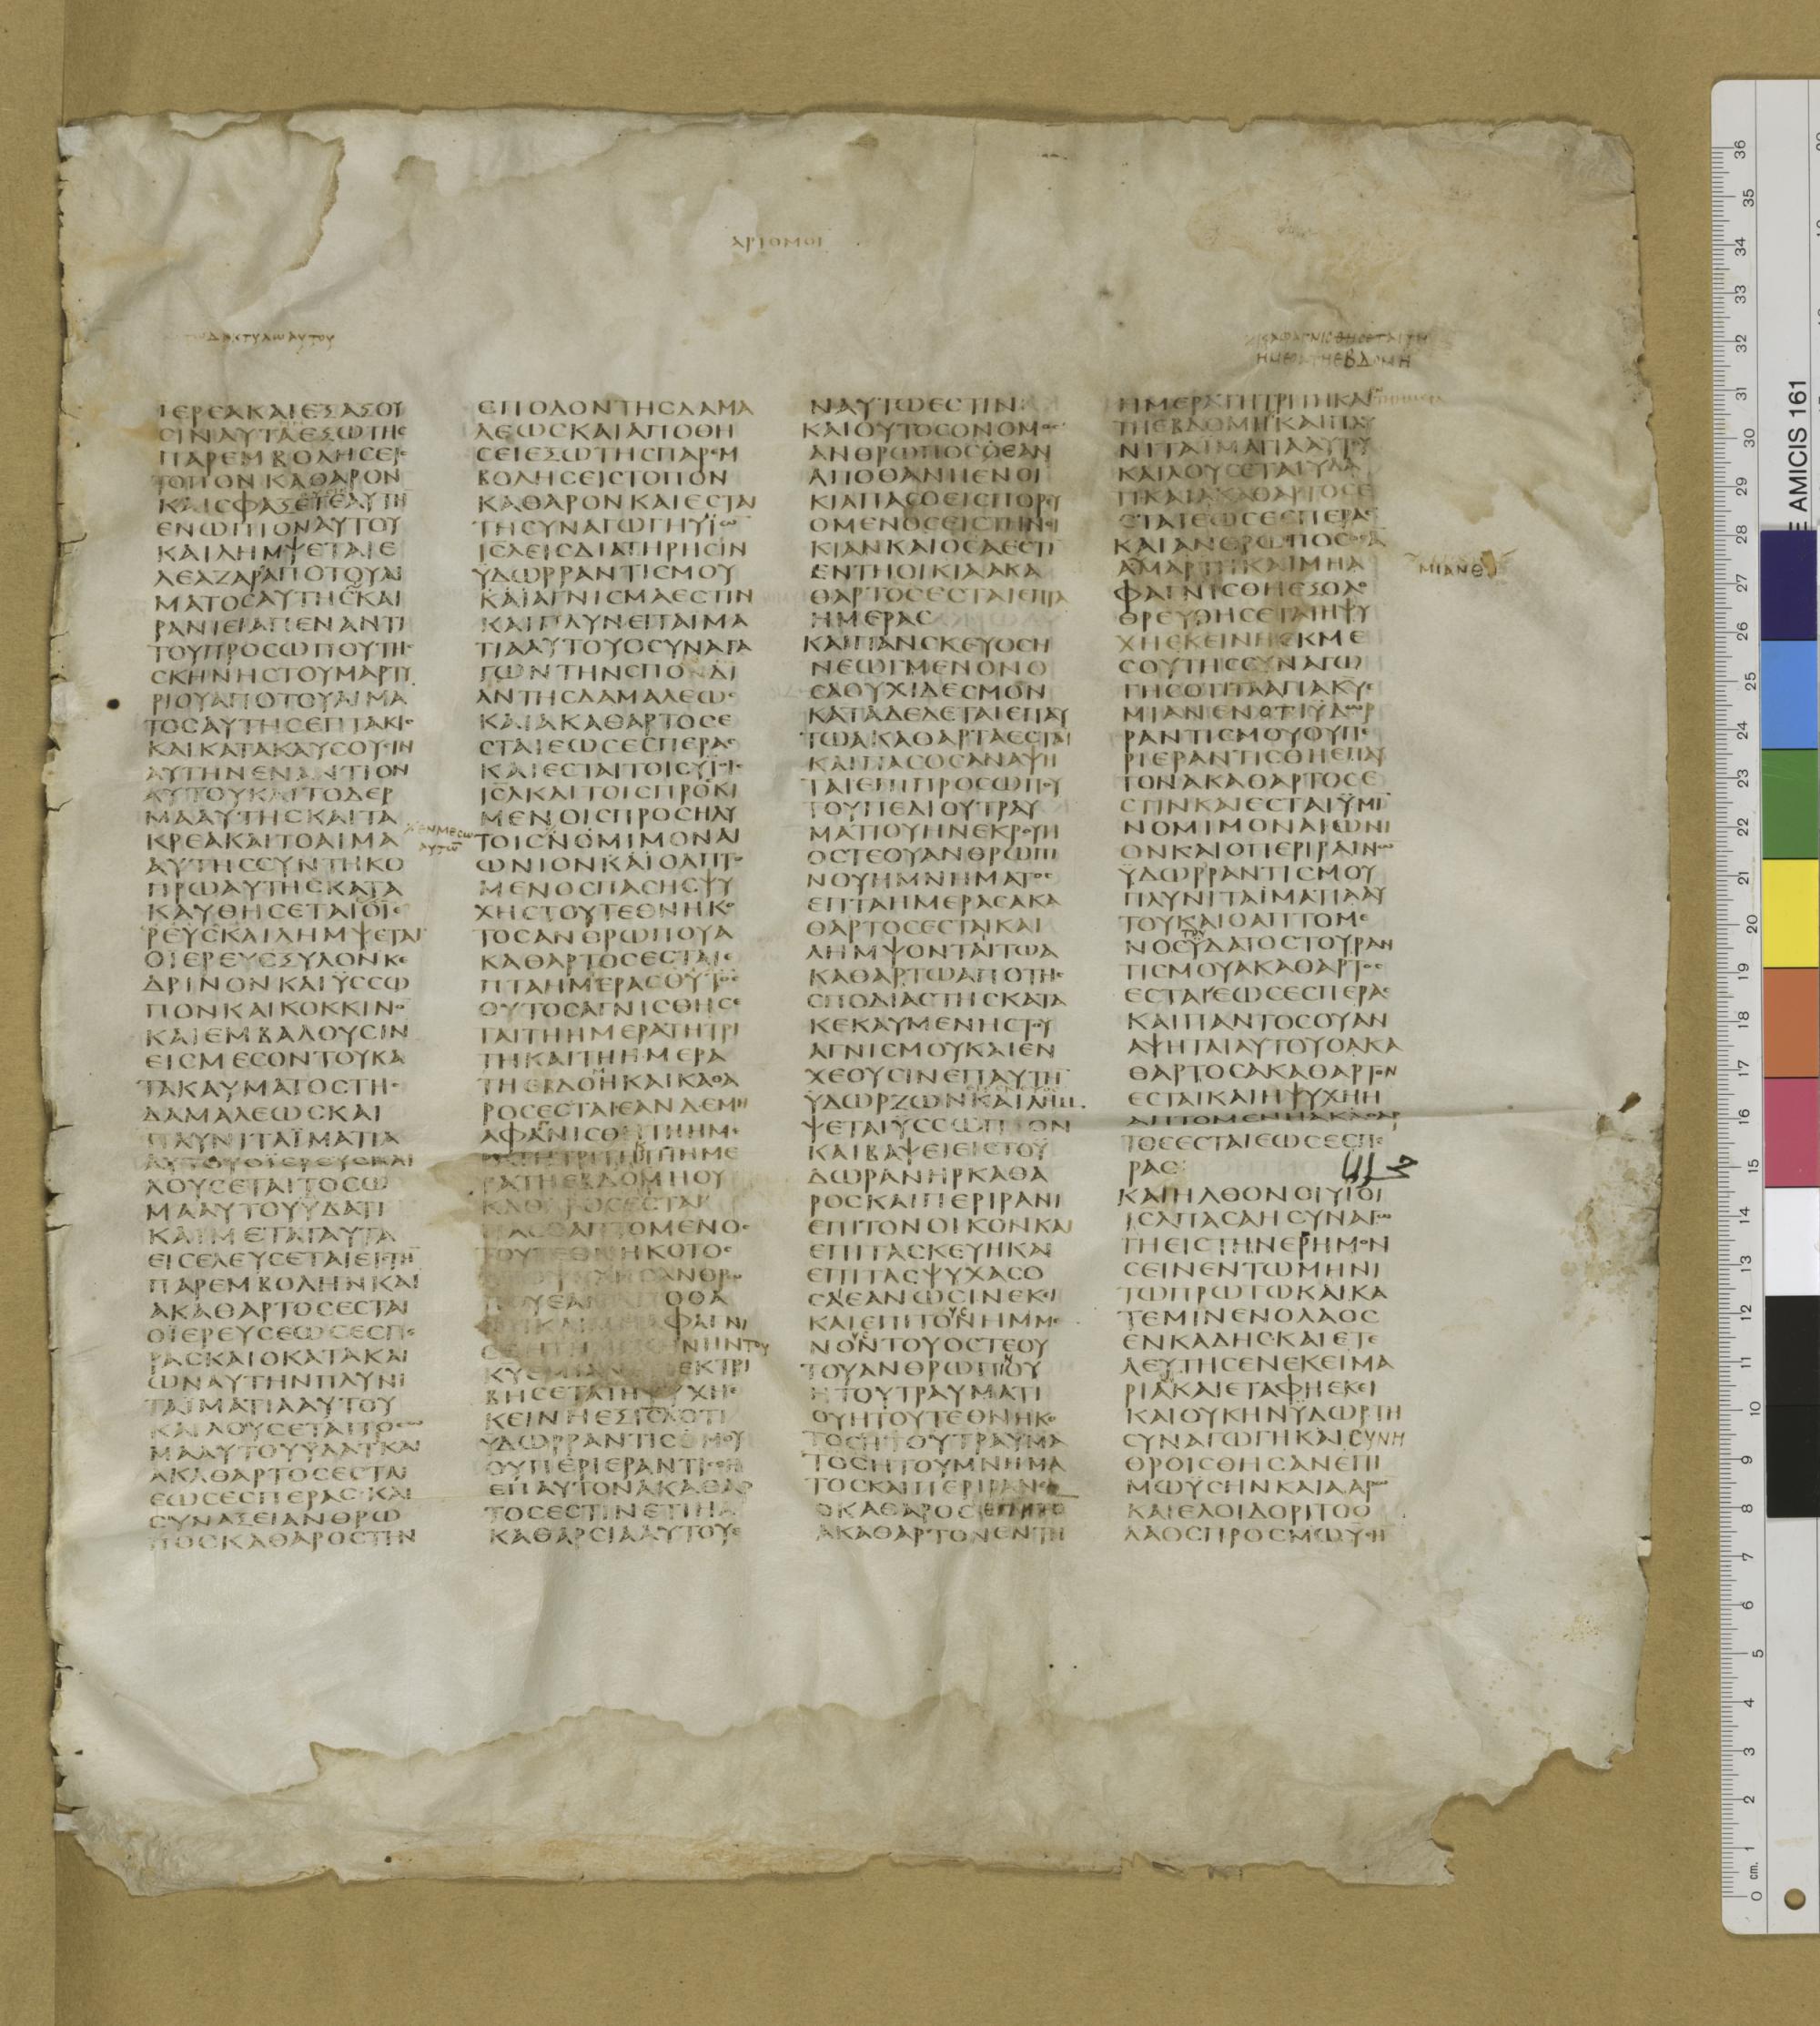 ΑΡΙΘΜΟΙ
ΤΩΔΑΚΤΥΛΩΑΥΤΟΥ
ΗΜΕΡΑΤΗΕΒΔΟΜΗ
ΙΕΡΕΑΚΑΙΕΞΑΞΟΥ
ΣΙΝΑΥΤΑΕΞΩΤΗϹ
ΠΑΡΕΜΒΟΛΗϹΕΙϹ
ΤΟΠΟΝΚΑΘΑΡΟΝ
ΚΑΙϹΦΑΞΕΤΕΑΥΤΗ
ΕΝΩΠΙΟΝΑΥΤΟΥ
ΚΑΙΛΗΜΨΕΤΑΙΕ
ΛΕΑΖΑΡΑΠΟΤΟΥΑΙ
ΜΑΤΟϹΑΥΤΗϹΚΑΙ
ΡΑΝΙΕΙΑΠΕΝΑΝΤΙ
ΤΟΥΠΡΟϹΩΠΟΥΤΗϹ
ϹΚΗΝΗϹΤΟΥΜΑΡΤΥ
ΡΙΟΥΑΠΟΤΟΥΑΙΜΑ
ΤΟϹΑΥΤΗϹΕΠΤΑΚΙϹ
ΚΑΙΚΑΤΑΚΑΥϹΟΥϹΙΝ
ΑΥΤΗΝΕΝΑΝΤΙΟΝ
ΑΥΤΟΥΚΑΙΤΟΔΕΡ
ΜΑΑΥΤΗϹΚΑΙΤΑ
ΚΡΕΑΚΑΙΤΟΑΙΜΑ
ΑΥΤΗϹϹΥΝΤΗΚΟ
ΠΡΩΑΥΤΗϹΚΑΤΑ
ΚΑΥΘΗϹΕΤΑΙΟΪΕ
ΡΕΥϹΚΑΙΛΗΜΨΕΤΑΙ
ΟΙΕΡΕΥϹΞΥΛΟΝΚΕ
ΔΡΙΝΟΝΚΑΙΫϹϹΩ
ΠΟΝΚΑΙΚΟΚΚΙΝΟ
ΚΑΙΕΜΒΑΛΟΥϹΙΝ
ΕΙϹΜΕϹΟΝΤΟΥΚΑ
ΤΑΚΑΥΜΑΤΟϹΤΗϹ
ΔΑΜΑΛΕΩϹΚΑΙ
ΠΛΥΝΙΤΑΪΜΑΤΙΑ
ΑΥΤΟΥΟΪΕΡΕΥϹΚΑΙ
ΛΟΥϹΕΤΑΙΤΟϹΩ
ΜΑΑΥΤΟΥΫΔΑΤΙ
ΚΑΙΜΕΤΑΤΑΥΤΑ
ΕΙϹΕΛΕΥϹΕΤΑΙΕΙϹΤΗ
ΠΑΡΕΜΒΟΛΗΝΚΑΙ
ΑΚΑΘΑΡΤΟϹΕϹΤΑΙ
ΟΪΕΡΕΥϹΕΩϹΕϹΠΕ
ΡΑϹΚΑΙΟΚΑΤΑΚΑΙ
ΩΝΑΥΤΗΝΠΛΥΝΙ
ΤΑΪΜΑΤΙΑΑΥΤΟΥ
ΚΑΙΛΟΥϹΕΤΑΙΤΟϹΩ
ΜΑΑΥΤΟΥΫΔΑΤΙΚΑΙ
ΑΚΑΘΑΡΤΟϹΕϹΤΑΙ
ΕΩϹΕϹΠΕΡΑϹΚΑΙ
ϹΥΝΑΞΕΙΑΝΘΡΩ
ΠΟϹΚΑΘΑΡΟϹΤΗΝ
ΕΝΜΕϹΩ
ΑΥΤΩ
ϹΠΟΔΟΝΤΗϹΔΑΜΑ
ΛΕΩϹΚΑΙΑΠΟΘΗ
ϹΕΙΕΞΩΤΗϹΠΑΡΕΜ
ΒΟΛΗϹΕΙϹΤΟΠΟΝ
ΚΑΘΑΡΟΝΚΑΙΕϹΤΑΙ
ΤΗϹΥΝΑΓΩΓΗΥΪΩ
ΙϹΛΕΙϹΔΙΑΤΗΡΗϹΙΝ
ΫΔΩΡΡΑΝΤΙϹΜΟΥ
ΚΑΙΑΓΝΙϹΜΑΕϹΤΙΝ
ΚΑΙΠΛΥΝΕΙΤΑΙΜΑ
ΤΙΑΑΥΤΟΥΟϹΥΝΑΓΑ
ΓΩΝΤΗΝϹΠΟΔΙ
ΑΝΤΗϹΔΑΜΑΛΕΩϹ
ΚΑΙΑΚΑΘΑΡΤΟϹΕ
ϹΤΑΙΕΩϹΕϹΠΕΡΑϹ
ΚΑΙΕϹΤΑΙΤΟΙϹΥΪΟΙϹ
ΙϹΛΚΑΙΤΟΙϹΠΡΟϹΚΙ
ΜΕΝΟΙϹΠΡΟϹΗΛΥ
ΤΟΙϹΝΟΜΙΜΟΝΑΙ
ΩΝΙΟΝΚΑΙΟΑΠΤΟ
ΜΕΝΟϹΠΑϹΗϹΨΥ
ΧΗϹΤΟΥΤΕΘΝΗΚΟ
ΤΟϹΑΝΘΡΩΠΟΥΑ
ΚΑΘΑΡΤΟϹΕϹΤΑΙΕ
ΠΤΑΗΜΕΡΑϹΟΥΤΟϹ
ΟΥΤΟϹΑΓΝΙϹΘΗϹΕ
ΤΑΙΤΗΗΜΕΡΑΤΗΤΡΙ
ΤΗΚΑΙΤΗΗΜΕΡΑ
ΤΗΕΒΔΟΜΗΚΑΙΚΑΘΑ
ΡΟϹΕϹΤΑΙΕΑΝΔΕΜΗ
ΑΦΑΓΝΙϹΘΗΤΗΗΜΕ
ΡΑΤΗΤΡΙΤΗΤΗΗΜΕ
ΡΑΤΗΕΒΔΟΜΗΟΥ
ΚΑΘΑΡΟϹΕϹΤΑΙ
ΠΑϹΟΑΠΤΟΜΕΝΟϹ
ΤΟΥΤΕΘΝΗΚΟΤΟϹ
ΚΥΕΜΙΑΝ ΕΚΤΡΙ
ΒΗϹΕΤΑΙΗΨΥΧΗΕ
ΚΕΙΝΗΕΞΙϹΛΟΤΙ
ΥΔΩΡΡΑΝΤΙϹΜΟΥ
ΟΥΠΕΡΙΕΡΑΝΤΙϹΘΗ
ΕΠΑΥΤΟΝΑΚΑΘΑΡ
ΤΟϹΕϹΤΙΝΕΤΙΗΑ
ΚΑΘΑΡϹΙΑΑΥΤΟΥΕ
ΝΑΥΤΩΕϹΤΙΝ
ΚΑΙΟΥΤΟϹΟΝΟΜΟϹ
ΑΝΘΡΩΠΟϹΟΕΑΝ
ΑΠΟΘΑΝΗΕΝΟΙ
ΚΙΑΠΑϹΟΕΙϹΠΟΡΕΥ
ΟΜΕΝΟϹΕΙϹΤΗΝΟΙ
ΚΙΑΝΚΑΙΟϹΑΕϹΤΙ
ΕΝΤΗΟΙΚΙΑΑΚΑ
ΘΑΡΤΟϹΕϹΤΑΙΕΠΤΑ
ΗΜΕΡΑϹ
ΚΑΙΠΑΝϹΚΕΥΟϹΗ
ΝΕΩΓΜΕΝΟΝΟ
ϹΑΟΥΧΙΔΕϹΜΟΝ
ΚΑΤΑΔΕΔΕΤΑΙΕΠΑΥ
ΤΩΑΚΑΘΑΡΤΑΕϹΤΑΙ
ΚΑΙΠΑϹΟϹΑΝΑΨΗ
ΤΑΙΕΠΙΠΡΟϹΩΠΟΥ
ΤΟΥΠΕΔΙΟΥΤΡΑΥ
ΜΑΤΙΟΥΗΝΕΚΡΟΥΗ
ΟϹΤΕΟΥΑΝΘΡΩΠΙ
ΝΟΥΗΜΝΗΜΑΤΟϹ
ΕΠΤΑΗΜΕΡΑϹΑΚΑ
ΘΑΡΤΟϹΕϹΤΑΙΚΑΙ
ΛΗΜΨΟΝΤΑΙΤΩΑ
ΚΑΘΑΡΤΩΑΠΟΤΗϹ
ϹΠΟΔΙΑϹΤΗϹΚΑΤΑ
ΚΕΚΑΥΜΕΝΗϹΤΟΥ
ΑΓΝΙϹΜΟΥΚΑΙΕΝ
ΧΕΟΥϹΙΝΕΠΑΥΤΗ
ΫΔΩΡΖΩΝΚΑΙΛΗΜ
ΨΕΤΑΙΥϹϹΩΠΟΝ
ΚΑΙΒΑΨΕΙΕΙϹΤΟΫ
ΔΩΡΑΝΗΡΚΑΘΑ
ΡΟϹΚΑΙΠΕΡΙΡΑΝΙ
ΕΠΙΤΟΝΟΙΚΟΝΚΑΙ
ΕΠΙΤΑϹΚΕΥΗΚΑΙ
ΕΠΙΤΑϹΨΥΧΑϹΟ
ϹΑΙΕΑΝΩϹΙΝΕΚΕΙ
ΚΑΙΕΠΙΤΟΝΗΜΜΕ
ΝΟΝΤΟΥΟϹΤΕΟΥ
ΤΟΥΑΝΘΡΩΠΙΟΥ
ΗΤΟΥΤΡΑΥΜΑΤΙ
ΟΥΗΤΟΥΤΕΘΝΗΚΟ
ΤΟϹΗΤΟΥΤΡΑΥΜΑ
ΤΟϹΗΤΟΥΜΝΗΜΑ
ΤΟϹΚΑΙΠΕΡΙΡΑΝΕΙ
ΟΚΑΘΑΡΟϹΕΠΙΤΟ
ΑΚΑΘΑΡΤΟΝΕΝΤΗ
ΗΜΕΡΑΤΗΤΡΙΤΗΚΑΙ
ΤΗΕΒΔΟΜΗΚΑΙΠΛΥ
ΝΙΤΑΪΜΑΤΙΑΑΥΤΟΥ
ΚΑΙΛΟΥϹΕΤΑΙΥΔΑ
ΤΙΚΑΙΑΚΑΘΑΡΤΟϹΕ
ϹΤΑΙΕΩϹΕϹΠΕΡΑϹ
ΚΑΙΑΝΘΡΩΠΟϹΟϹΑ
ΜΙΑΝΘΗ
ΑΜΑΡΤΗΚΑΙΜΗΑ
ΦΑΓΝΙϹΘΗΕΞΟΛΕ
ΘΡΕΥΘΗϹΕΤΑΙΗΨΥ
ΧΗΕΚΕΙΝΗΕΚΜΕ
ϹΟΥΤΗϹϹΥΝΑΓΩ
ΓΗϹΟΤΙΤΑΑΓΙΑΚΥΕ
ΜΙΑΝΕΝΟΤΙΫΔΩΡ
ΡΑΝΤΙϹΜΟΥΟΥΠΕ
ΡΙΕΡΑΝΤΙϹΘΗΕΠΑΥ
ΤΟΝΑΚΑΘΑΡΤΟϹΕ
ϹΤΙΝΚΑΙΕϹΤΑΙΫΜΙ
ΝΟΜΙΜΟΝΑΙΩΝΙ
ΟΝΚΑΙΟΠΕΡΙΡΑΙΝΩ
ΫΔΩΡΡΑΝΤΙϹΜΟΥ
ΠΛΥΝΙΤΑΪΜΑΤΙΑΑΥ
ΤΟΥΚΑΙΟΑΠΤΟΜΕ
ΤΟΥ
ΝΟϹΫΔΑΤΟϹΤΟΥΡΑΝ
ΤΙϹΜΟΥΑΚΑΘΑΡΤΟϹ
ΕϹΤΑΙΕΩϹΕϹΠΕΡΑϹ
ΚΑΙΠΑΝΤΟϹΟΥΑΝ
ΑΨΗΤΑΙΑΥΤΟΥΟΑΚΑ
ΘΑΡΤΟϹΑΚΑΘΑΡΤΟΝ
ΕϹΤΑΙΚΑΙΗΨΥΧΗΗ
ΑΠΤΟΜΕΝΗΑΚΑΘΑΡ
ΤΟϹΕϹΤΑΙΕΩϹΕϹΠΕ
ΡΑϹ
ΚΑΙΗΛΘΟΝΟΙΥΙΟΙ
ΙϹΛΠΑϹΑΗϹΥΝΑΓΩ
ΓΗΕΙϹΤΗΝΕΡΗΜΟΝ
ϹΕΙΝΕΝΤΩΜΗΝΙ
ΤΩΠΡΩΤΩΚΑΙΚΑ
ΤΕΜΙΝΕΝΟΛΑΟϹ
ΕΝΚΑΔΗϹΚΑΙΕΤΕ
ΛΕΥΤΗϹΕΝΕΚΕΙΜΑ
ΡΙΑΚΑΙΕΤΑΦΗΕΚΕΙ
ΚΑΙΟΥΚΗΝΫΔΩΡΤΗ
ϹΥΝΑΓΩΓΗΚΑΙϹΥΝΗ
ΘΡΟΙϹΘΗϹΑΝΕΠΙ
ΜΩΫϹΗΝΚΑΙΑΑΡΩ
ΚΑΙΕΛΟΙΔΟΡΙΤΟΟ
ΛΑΟϹΠΡΟϹΜΩΥϹΗ
E AMICIS 161
36
35
34
33
32
31
30
29
28
27
26
25
24
23
22
21
20
19
18
17
16
15
14
13
12
11
10
9
8
7
6
5
4
3
2
1
0 cm.